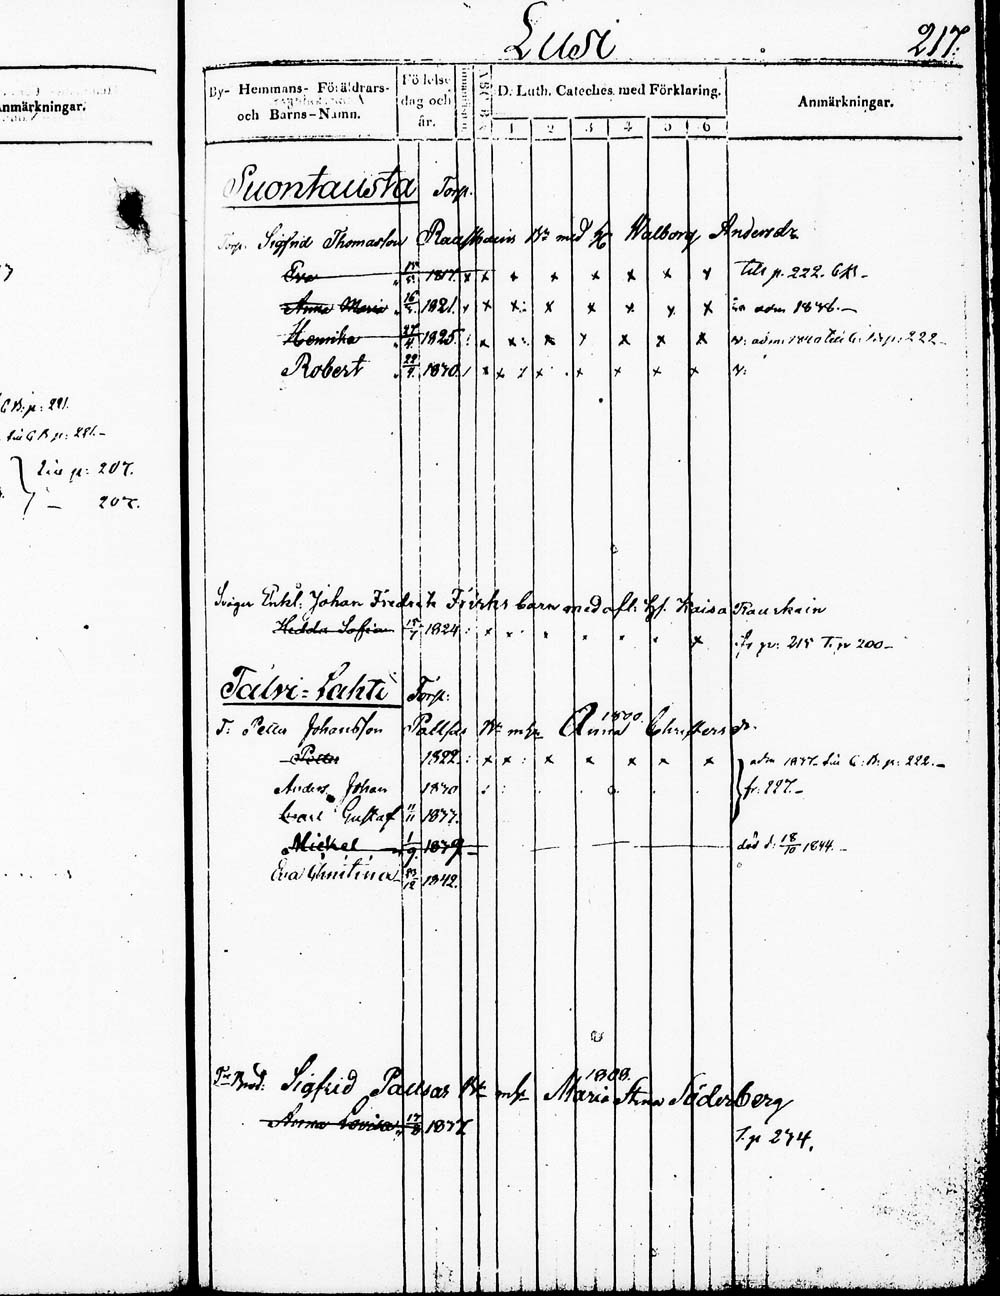 Lusi
217.
By- Hemmans- Föräldrars- och Barns-Namn.
Födelse dag och år.
D. Luth. Cateches. med Förklaring.
1 2 3 4 5 6
Anmärkningar.
Anmärkningar.
Suontausta Torp.
Torp. Sigfrid Thomasson Rauskauin Bn med H Walborg Andersdr
Eva 15/5 1817. x x x x x x x x till p. 222. CB.
Anna Maria 16/5 1821. x x x x x x x x adm 1838.
Henrika 27/4 1825. x x x x x x x adm: 1840 p: 222
Robert 22/7 1830. x x x x x x x
C B: p: 221.
C B p: 221.
p: 207.
207.
Sväger Enkl: Johan Fredrik barn med afl: H. Kaisa Rauskain
Hedda Sofia 15/7 1824 p: 215 T. p 200
Talvi-Lahti Torp.
T: Petter Johansson Bn m h Anna 1800. Christersdr.
Petter 1822. x x x x x x x adm 1837. C: B: p: 222.
Anders Johan 1830 fr: 227.
Carl Gustaf 11/11 1837.
Mickel 1/9 1839 död d: 18/10 1844.
Eva Christina 23/12 1842.
Brod: Sigfrid Paksas Bn m h Maria Stina 1808. Söderberg
Anna Lovisa 17/8 1837.
T. p 234.